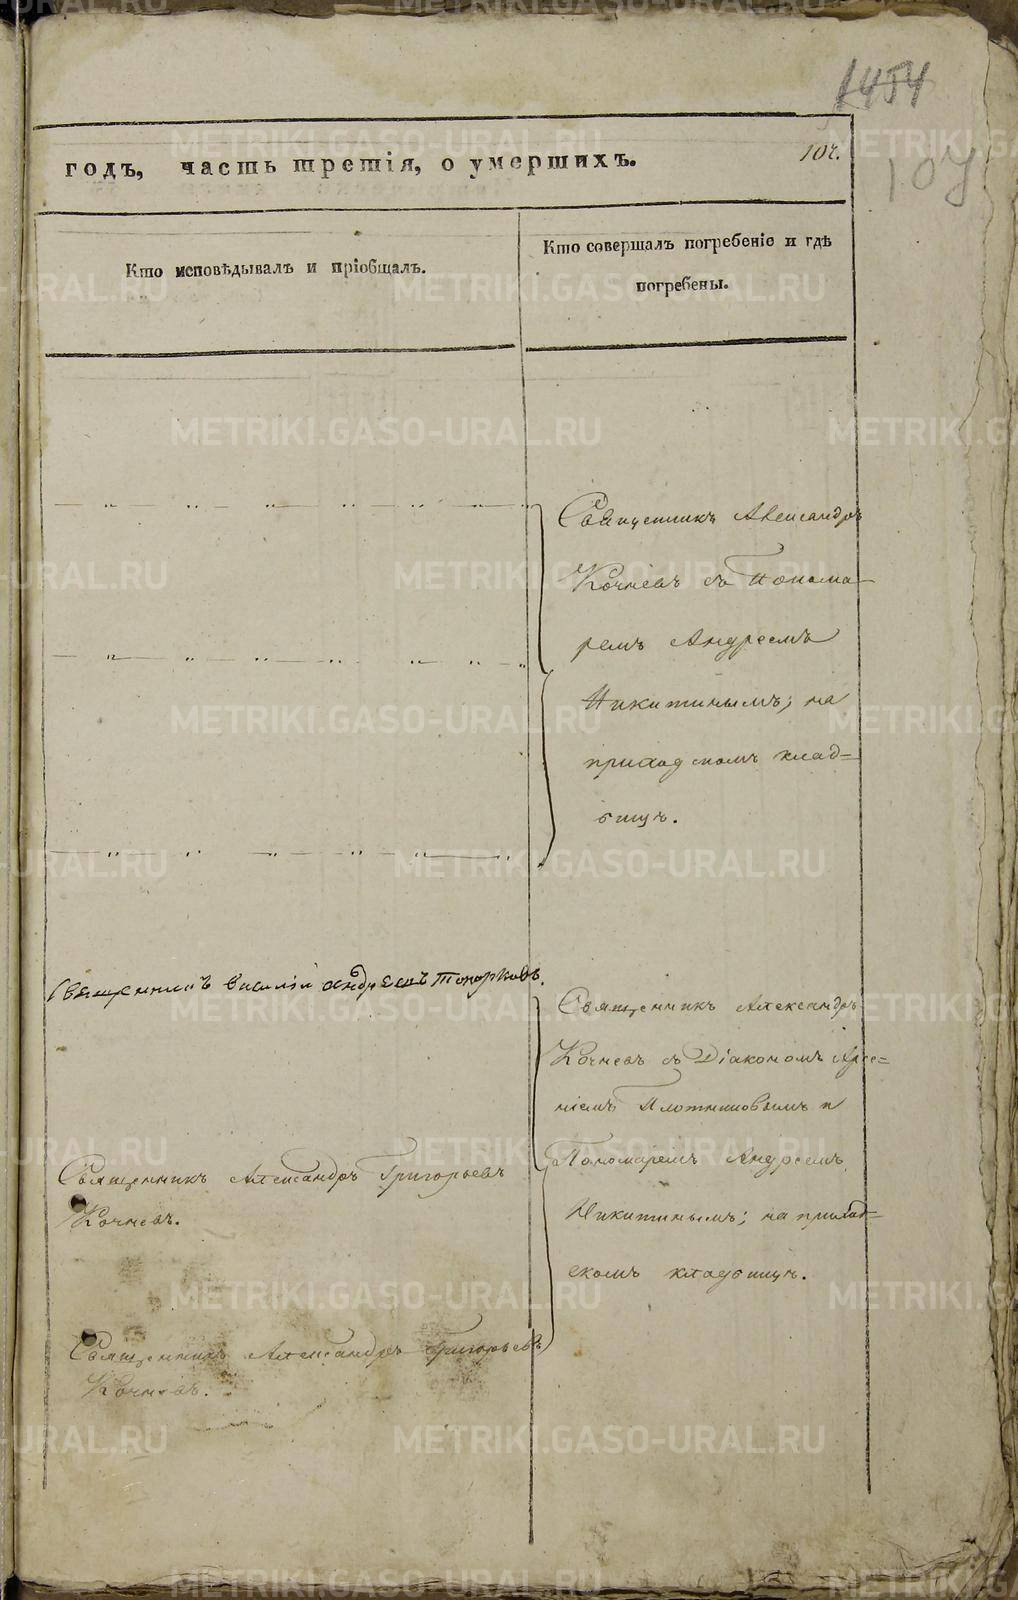 1454
годъ, часть третія, о умершихъ.
107.
107
Кто исповѣдывалъ и пріобщалъ.
Кто совершалъ погребеніе и гдѣ
погребены.
Священникъ Александръ
Кочневъ съ Понома-
ремъ Андреемъ
Никитинымъ; на
приходскомъ клад=
бищѣ.
Священникъ Василій Андреевъ Топорковъ.
Священникъ Александръ
Кочневъ съ Діакономъ Арсе=
ніемъ Плотниковымъ и
Пономаремъ Андреемъ
Никитинымъ; на приход=
скомъ кладбищѣ.
Священникъ Александръ Григорьевъ
Кочневъ.
Священникъ Александръ Григорьевъ
Кочневъ.
METRIKI.GASO-URAL.RU